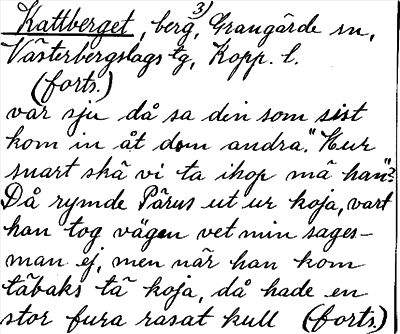 3)
Kattberget, berg, Grangärde sn,
Västerbergslags tg, Kopp. l.
(forts.)
var sju då sa din som sist
kom in åt dom andra: "Hur
snart skä vi ta ihop mä han"?
Då rymde Pärus ut ur koja, vart
han tog vägen vet min sages-
man ej, men när han kom
täbaks tä koja, då hade en
stor fura rasat kull (forts.)